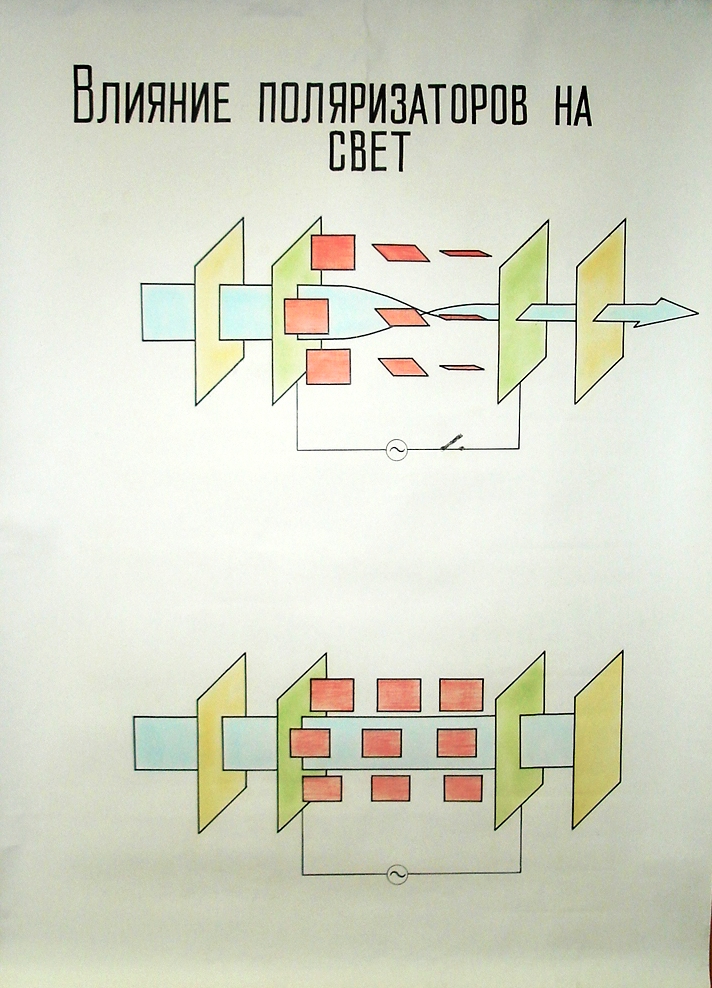 Влияние поляризаторов на
свет